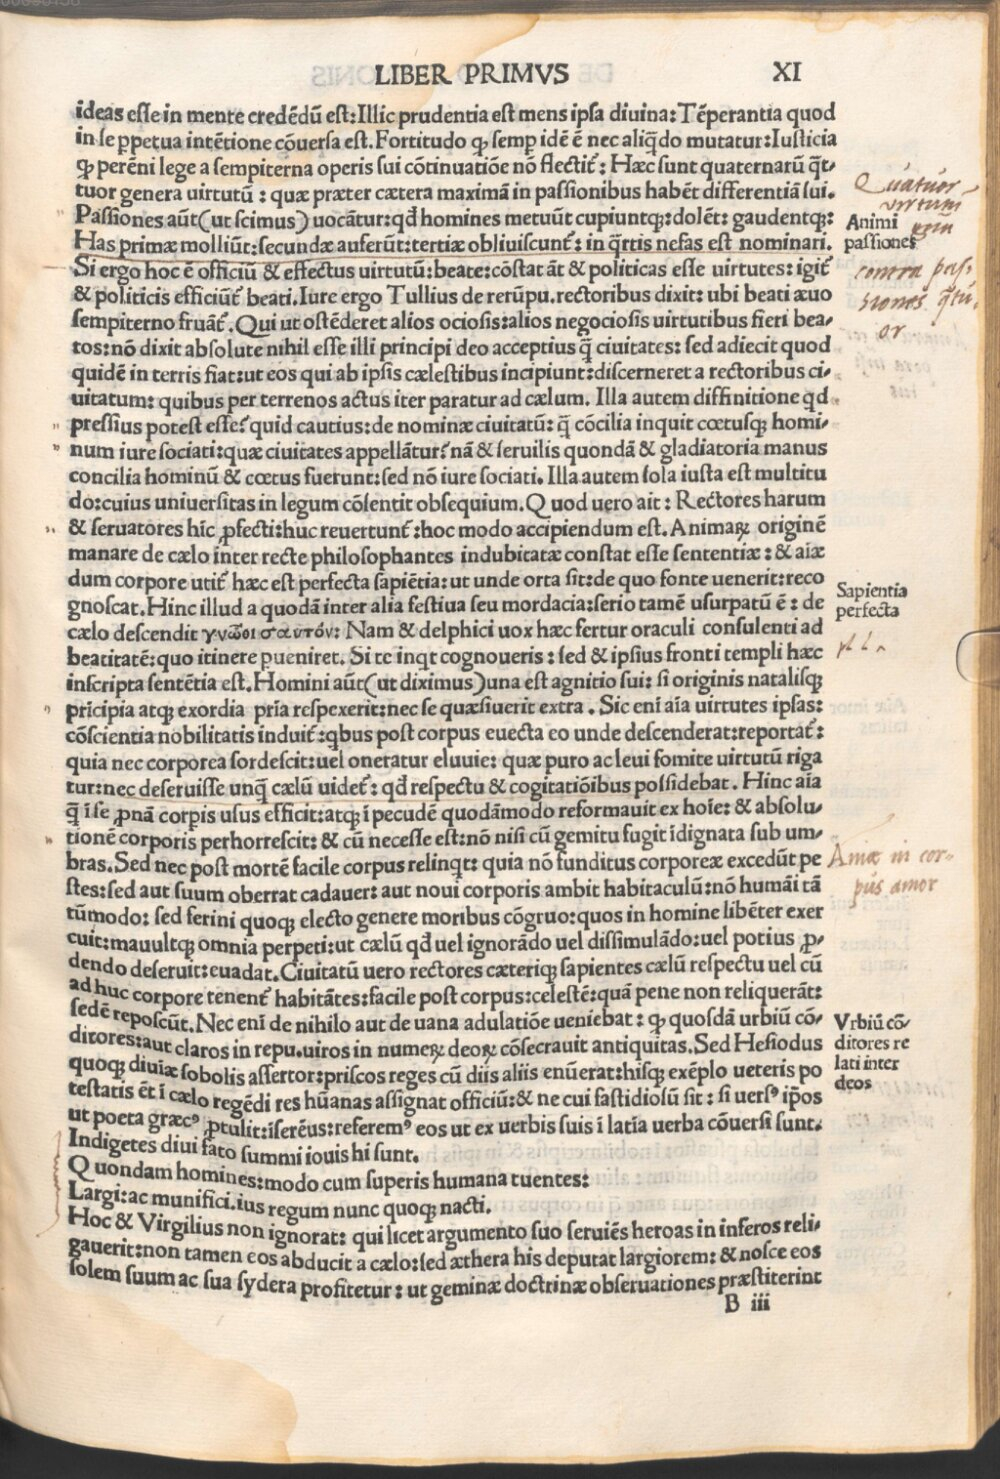 LIBER PRIMVS XI
ideas esse in mente credēdū est: Illic prudentia est mens ipsa diuina: Tēperantia quod
in se ꝑpetua intētione cōuersa est. Fortitudo ꝙ semp idē ē nec aliq̄do mutatur: Iusticia
ꝙ perēni lege a sempiterna operis sui cōtinuatiōe nō flectit᷑: Hæc sunt quaternarū q̄t-
tuor genera uirtutū : quæ præter cætera maximā in passionibus habēt differentiā sui.
Passiones aūt (ut scimus) uocātur: qđ homines metuūt cupiuntꝗ: dolēt: gaudentꝗ:
Has primæ molliūt: secundæ auferūt: tertiæ obliuiscunt᷑: in q̄rtis nefas est nominari.
Si ergo hoc ē officiū & effectus uirtutū: beate: cōstat āt & politicas esse uirtutes: igit᷑
& politicis efficiūt᷑ beati. Iure ergo Tullius de rerūpu. rectoribus dixit: ubi beati æuo
sempiterno fruāt᷑. Qui ut ostēderet alios ociosis: alios negociosis uirtutibus fieri bea-
tos: nō dixit absolute nihil esse illi principi deo acceptius q̄ ciuitates: sed adiecit quod
quidē in terris fiat: ut eos qui ab ipsis cælestibus incipiunt: discerneret a rectoribus ci-
uitatum: quibus per terrenos actus iter paratur ad cælum. Illa autem diffinitione qd
pressius potest esse? quid cautius: de nominæ ciuitatū: q̄ cōcilia inquit cœtusꝗ homi-
num iure sociati: quæ ciuitates appellātur? nā & seruilis quondā & gladiatoria manus
concilia hominū & cœtus fuerunt: sed nō iure sociati. Illa autem sola iusta est multitu
do: cuius uniuersitas in legum cōsentit obsequium. Quod uero ait: Rectores harum
& seruatores hīc ꝓfecti: huc reuertunt᷑: hoc modo accipiendum est. Animaꝝ originē
manare de cælo inter recte philosophantes indubitatæ constat esse sententiæ: & aiæ
dum corpore utit᷑ hæc est perfecta sapiētia: ut unde orta sit: de quo fonte uenerit: reco
gnoscat. Hinc illud a quodā inter alia festiua seu mordacia: serio tamē usurpatū ē : de
cælo descendit γνῶθι σαυτόν: Nam & delphici uox hæc fertur oraculi consulenti ad
beatitatē: quo itinere pueniret. Si te inqt cognoueris : sed & ipsius fronti templi hæc
inscripta sentētia est. Homini aūt (ut diximus) una est agnitio sui: si originis natalisꝗ
pricipia atꝗ exordia pria respexerit: nec se quæsiuerit extra. Sic eni aīa uirtutes ipsas:
cōscientia nobilitatis induit᷑: ꝗbus post corpus euecta eo unde descenderat: reportat᷑:
quia nec corporea sordescit: uel oneratur eluuie: quæ puro ac leui fomite uirtutū riga
tur: nec deseruisse unq̄ cælū uidet᷑: qđ respectu & cogitatiōibus possidebat. Hinc aīa
q̄ ī se ꝓnā corpis usus efficit: atꝗ ī pecudē quodāmodo reformauit ex hoīe: & absolu-
tionē corporis perhorrescit: & cū necesse est: nō nisi cū gemitu fugit īdignata sub um-
bras. Sed nec post mortē facile corpus relinqt: quia nō funditus corporeæ excedūt pe
stes: sed aut suum oberrat cadauer: aut noui corporis ambit habitaculū: nō humāi tā
tūmodo: sed ferini quoꝗ electo genere moribus cōgruo: quos in homine libēter exer
cuit: mauultꝗ omnia perpeti: ut cælū qđ uel ignorādo uel dissimulādo: uel potius ꝓ-
dendo deseruit: euadat. Ciuitatū uero rectores cæteriꝗ sapientes cælū respectu uel cū
adhuc corpore tenent᷑ habitātes: facile post corpus: celestē: quā pene non reliquerāt:
sedē reposcūt. Nec eni de nihilo aut de uana adulatiōe ueniebat : ꝙ quosdā urbiū cō-
ditores: aut claros in repu. uiros in numeꝝ deoꝝ cōsecrauit antiquitas. Sed Hesiodus
quoꝗ diuiæ sobolis assertor: priscos reges cū diis aliis enūerat: hisꝗ exēplo ueteris po
testatis ēt ī cælo regēdi res hūanas assignat officiū: & ne cui fastidiosū sit : si uersꝰ ipos
ut poeta græcꝰ ꝓtulit: iserēus: referemꝰ eos ut ex uerbis suis ī latia uerba cōuersi sunt.
Indigetes diui fato summi iouis hi sunt.
Quondam homines: modo cum superis humana tuentes:
Largi: ac munifici. ius regum nunc quoꝗ nacti.
Hoc & Virgilius non ignorat: qui licet argumento suo seruiēs heroas in inferos reli-
gauerit: non tamen eos abducit a cælo: sed æthera his deputat largiorem: & nosce eos
solem suum ac sua sydera profitetur: ut geminæ doctrinæ obseruationes præstiterint
B iii
Quatuor
virtutum
Animi
passiones
contra pas-
siones
or
Sapientia
perfecta
Aniæ in cor-
pus amor
Vrbiū cō-
ditores re
lati inter
deos